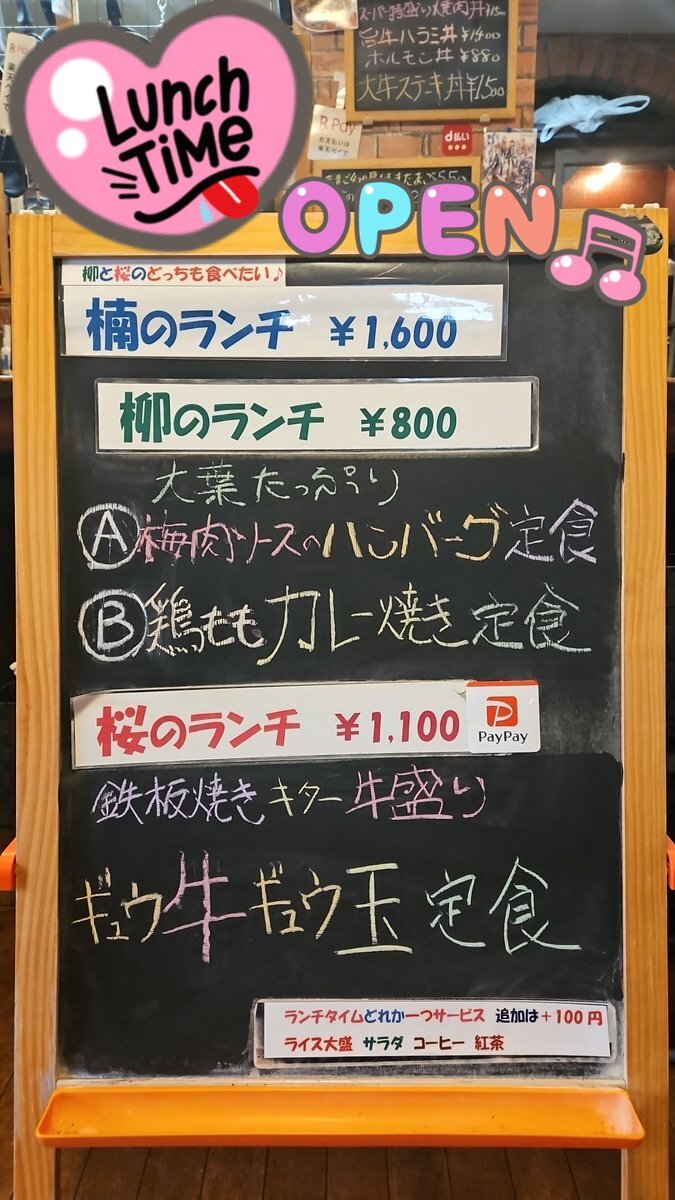 スーパー特盛り焼肉丼¥1500
旨牛ハラミ丼¥1400
ホルモン丼¥880
大牛ステーキ丼¥1500
R Pay
R Pay
お支払いは
楽天ペイで
d払い
Lunch
TiME
OPEN
柳と桜のどっちも食べたい♪
楠のランチ ￥1,600
柳のランチ ￥800
大葉たっぷり
Ⓐ梅肉ソースのハンバーグ定食
Ⓑ鶏ももカレー焼き定食
桜のランチ ￥1,100
PayPay
鉄板焼きキター牛盛り
ギュウ牛ギュウ玉定食
ランチタイムどれか一つサービス 追加は＋100円
ライス大盛 サラダ コーヒー 紅茶